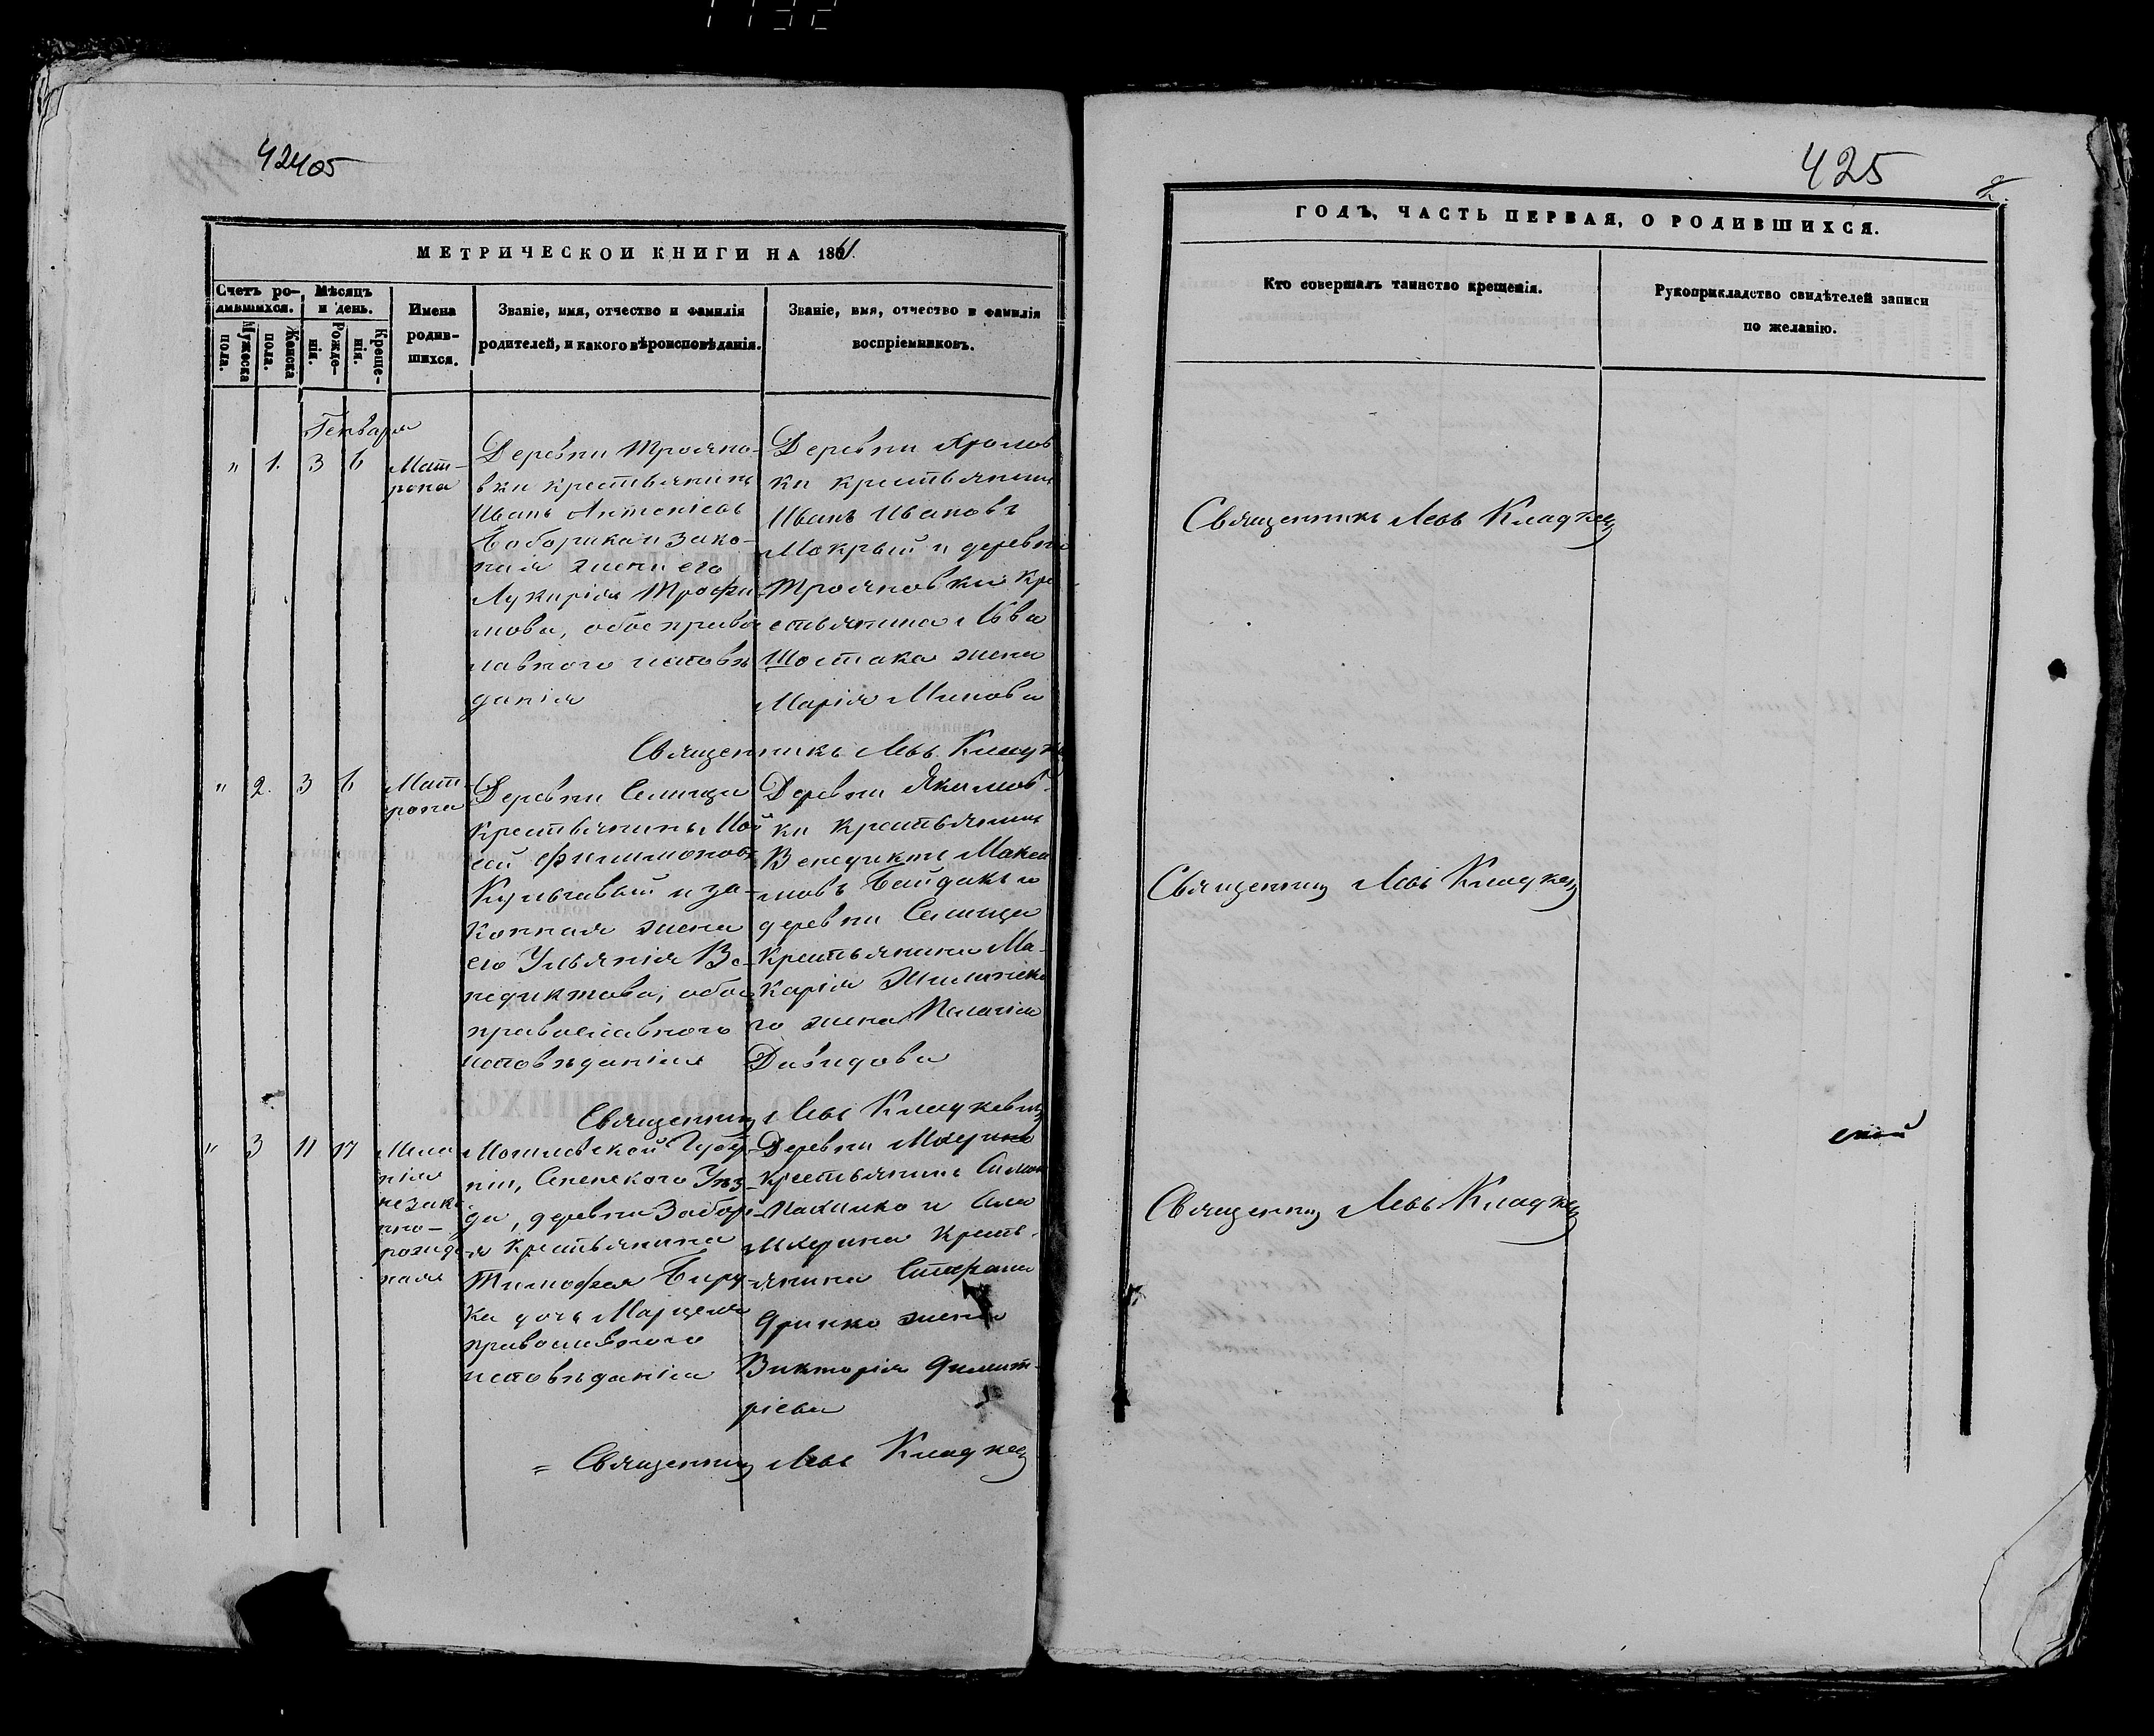 42405
МЕТРИЧЕСКОЙ КНИГИ НА 1861.
Счетъ родившихся.
Мѣсяцъ и день.
Имена родившихся.
Званіе, имя, отчество и фамилія родителей, и какого вѣроисповѣданія.
Званіе, имя, отчество и фамилія воспріемниковъ.
Мужеска пола.
Женска пола.
Рожденія.
Крещенія.
Генваря
" 1. 3 6
Мат-
рона
Деревни Трояно-
вки крестьянинъ
Иванъ Антоніевъ
и зако-
ная жена его
Лукирія Трофи
мова, обое право
лавного исповѣ
данія
Деревни
ки крестьянинъ
Иванъ Ивановъ
Мокрый и деревни
Трояновки кре
стьянина Льва
Шостака жена
Марія Минова
Священникъ Левъ
" 2. 3 6
Мат
рона
Деревни Селища
Крестьянинъ Мой
сей Филимоновъ
Кульчавый и за-
конная жена
его Ульянія Ве-
недиктова, обое
православного
исповѣданія
Деревни Якимов-
ки Крестьянинъ
Венедиктъ Макси
мовъ Байдакъ и
деревни Селища
Крестьянина Ма-
карія Жилинска
го жена Пелагія
Давидова
Священникъ Левъ Кладкевичъ
" 3 11 17
Мела
нія
незако
нно-
рожде
ная
Могилевской Губер
ніи, Сененского Уѣз-
да, деревни Забор
я Крестьянина
Тимофея Биру-
ка дочь
православного
исповѣданія
Деревни
Крестьянинъ Симон
и Села
Крест-
янина Стефана
жена
Викторія Димит-
ріева
= Священникъ Левъ Кладкев
425
ГОДЪ, ЧАСТЬ ПЕРВАЯ, О РОДИВШИХСЯ.
Кто совершалъ таинство крещенія.
Рукоприкладство свидѣтелей записи
по желанію.
Священникъ Левъ Кладкев
Священникъ Левъ Кладкев
Священникъ Левъ Кладкев